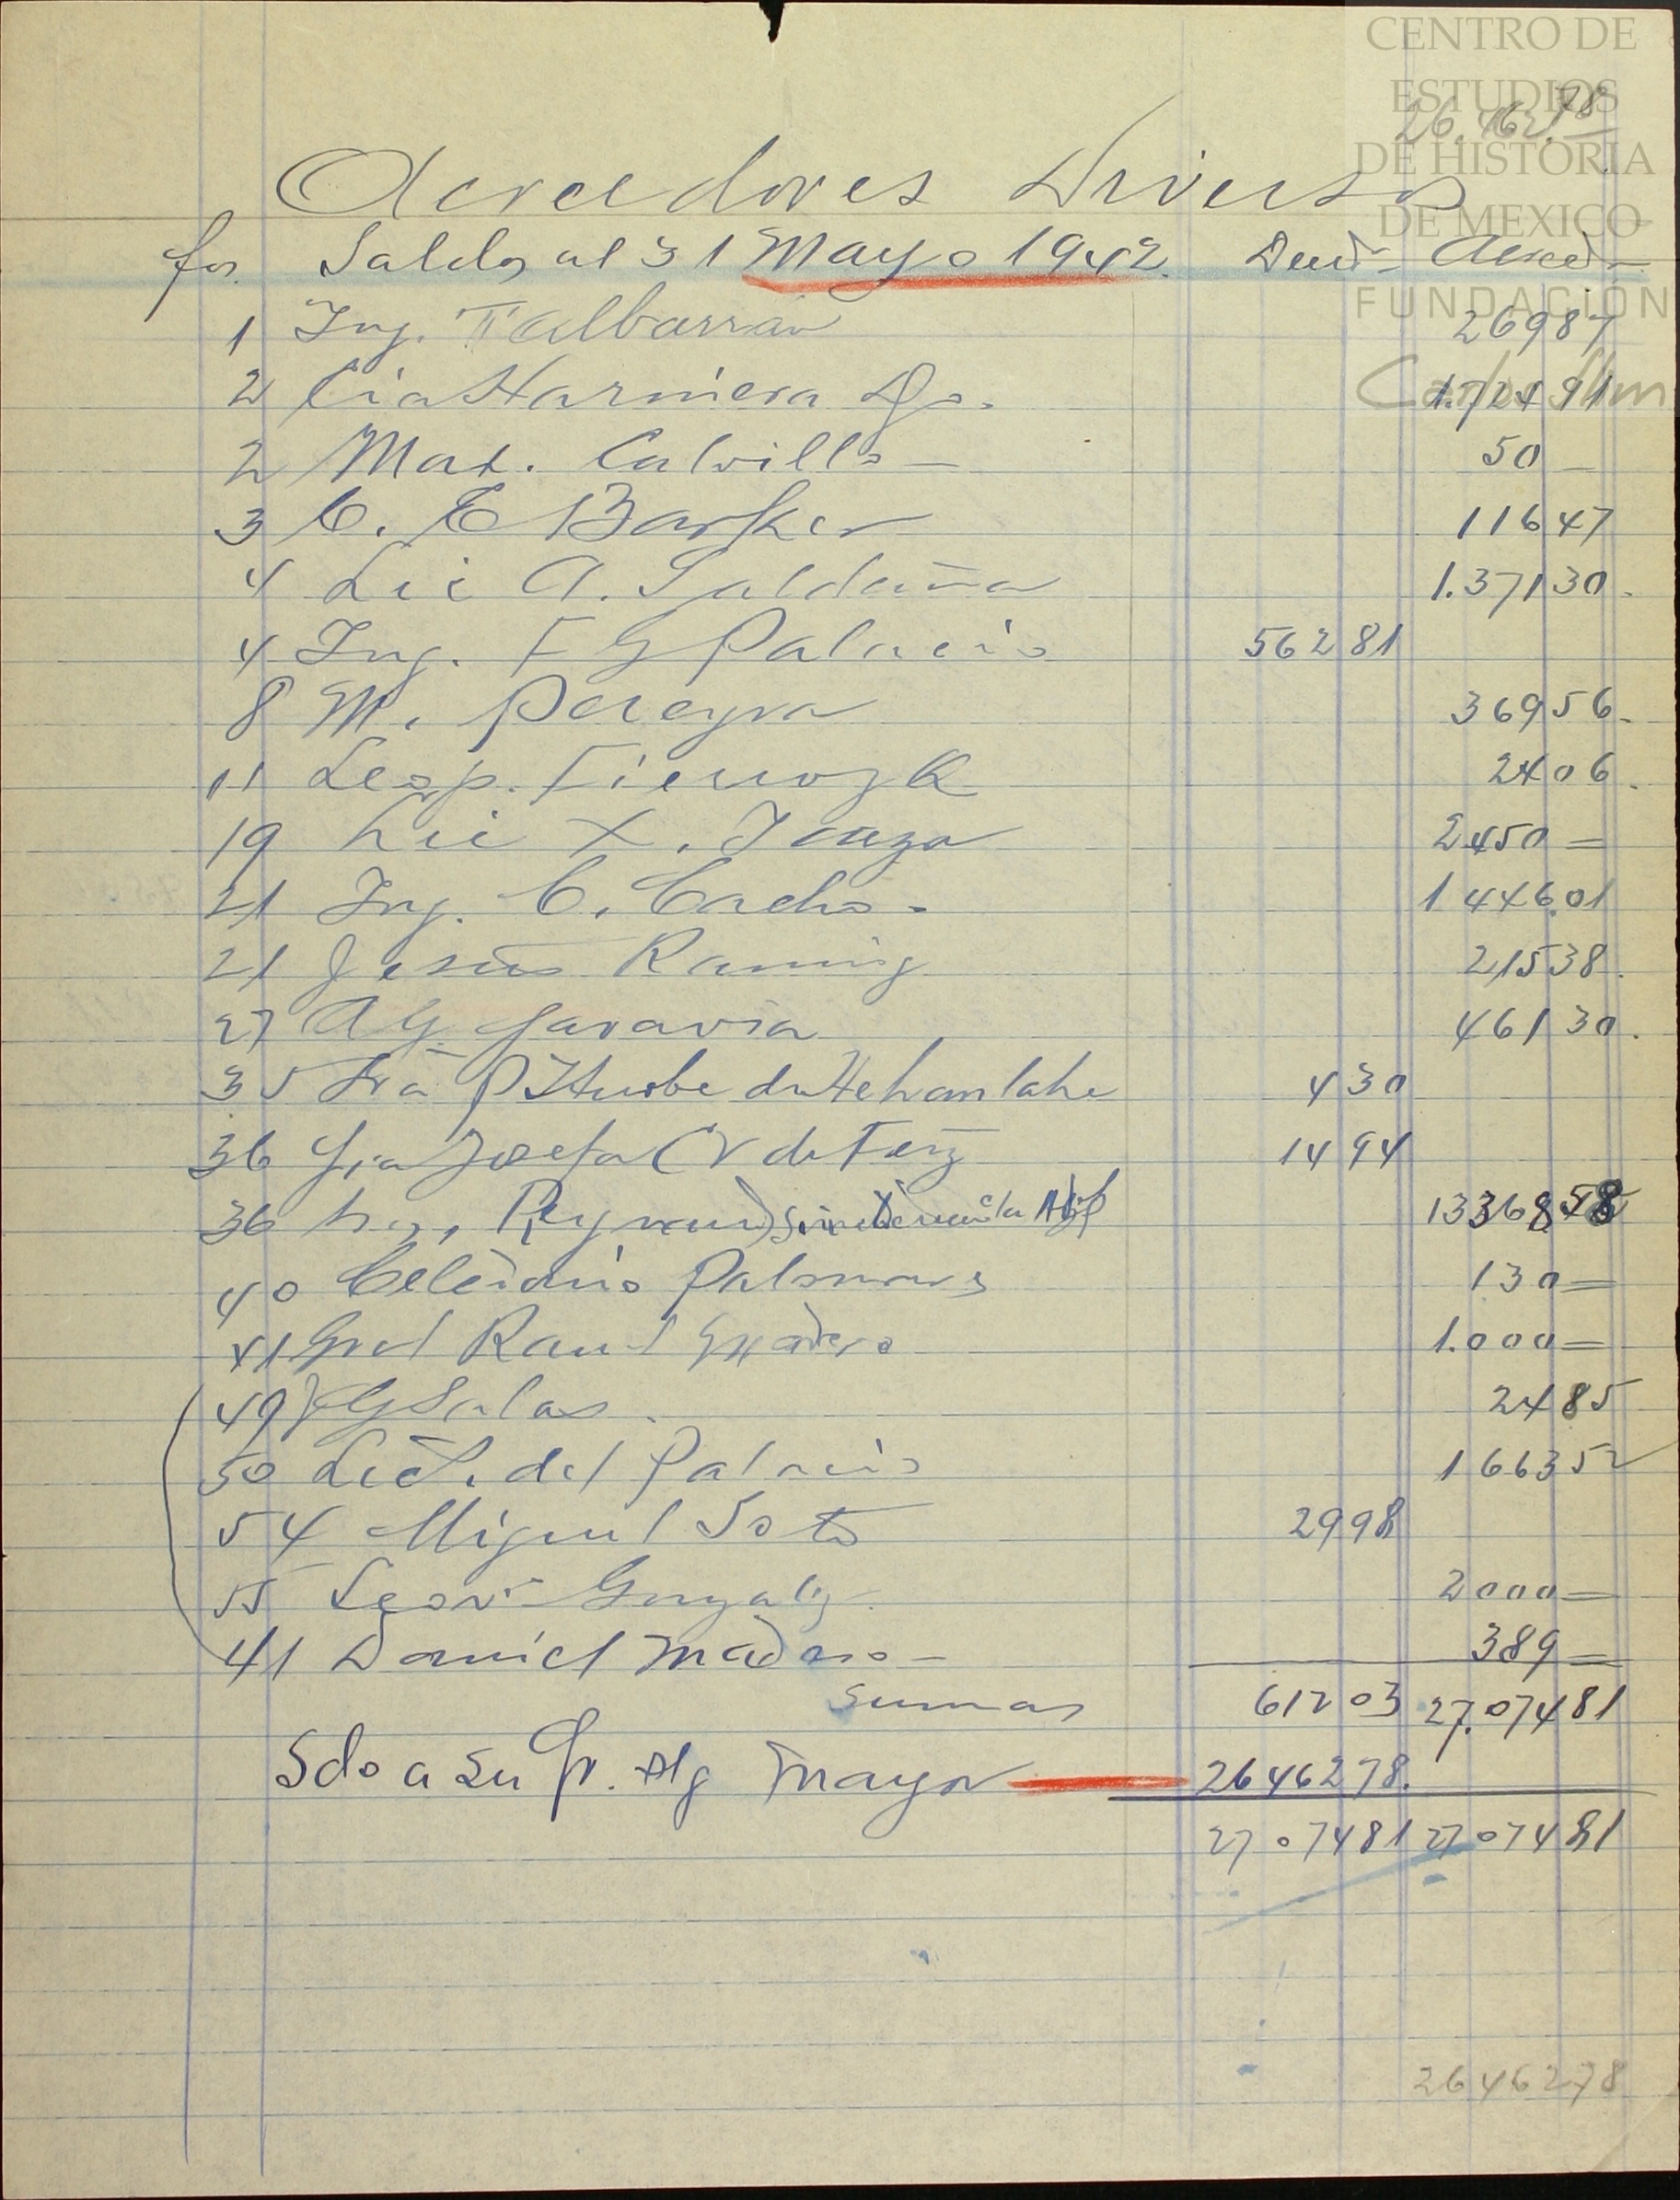 CENTRO DE
ESTUDIOS
DE HISTORIA
DE MEXICO
FUNDACIÓN
Carlos Slim
26.462.78
Acreedores Diversos
for Saldos al 31 Mayo 1942. Deud- Acreed-
1 Ing. F Albarran 26987
2 Cia Harinera Dgo. 1.72491
2 Mat. Calvillo - 50 -
3 C. E Barker 11647
4 Lic A. Saldaña 1.37130.
4 Ing. F G Palacio 56281
8 M. Pereyra 36956.
11 Leop. Fierro z R 2406.
19 Lic X. Icaza 2450 =
21 Ing. C. Cacho - 1 446.01
21 Jesus Ramirz 21538.
27 A G. Saravia 46130.
35 Sra P Iturbe de 430
36 Sra Josefa C V de Ferz 1494
36 13368 58
40 Celedonio Palomares 130 =
41 Gral Raul Madero 1.000 =
49 J G Salas. 2485
50 Lic del Palacio 166352
54 Miguel Soto 2998
55 Leon Gonzalz. 2000 =
41 Daniel Madero - 389 =
Sumas 61203 27.07481
Sdo a su Cr. Mayor 2646278.
2707481 2707481
2646278